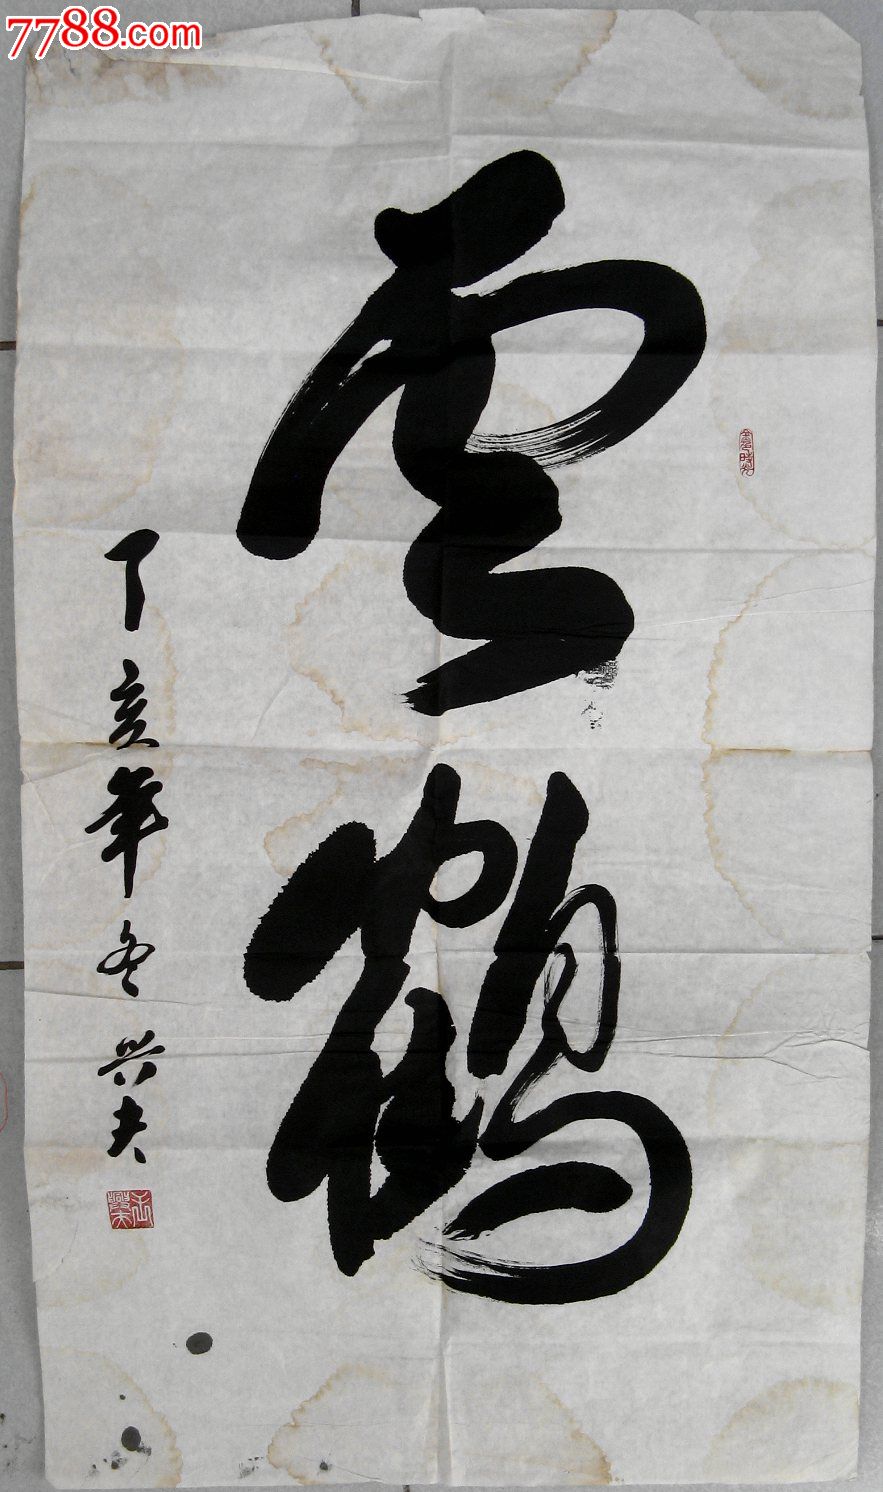 7788.com
雲鶴
丁亥年冬兴夫